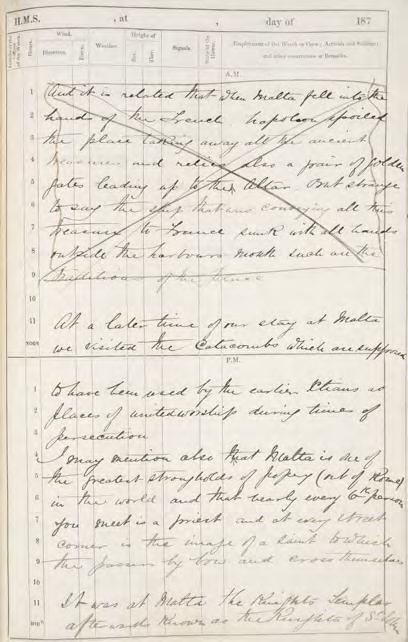 H.M.S. , at , day of 187
Wind. Height of Employment of the Watch or Crew; Arrivals and Sailings;
Hours. Direction. Force. Weather. Bar. Ther. Signals. and other occurrences or Remarks.
A.M.
1 And it is related that when Malta fell into the
2 hands of the French Napoleon spoiled
3 the place taking away all the ancient
4 treasures and relics also a pair of golden
5 gates leading up to the Altar. But strange
6 to say the ship that was conveying all this
7 treasure to France sunk with all hands
8 outside the harbours mouth such are the
9 traditions of the place
10
11 At a later time of our stay at Malta
NOON we visited the Catacombs which are supposed
P.M.
1 to have been used by the earlier Xtians as
2 places of united worship during times of
3 persecution
4 I may mention also that Malta is one of
5 the greatest strongholds of popery (out of Rome)
6 in the world and that nearly every 6th person
7 you meet is a priest and at every street
8 corner is the image of a saint to which
9 the passers by bow and cross themselves
10
11 It was at Malta the Knights Templar
afterwards known as the Knights of St